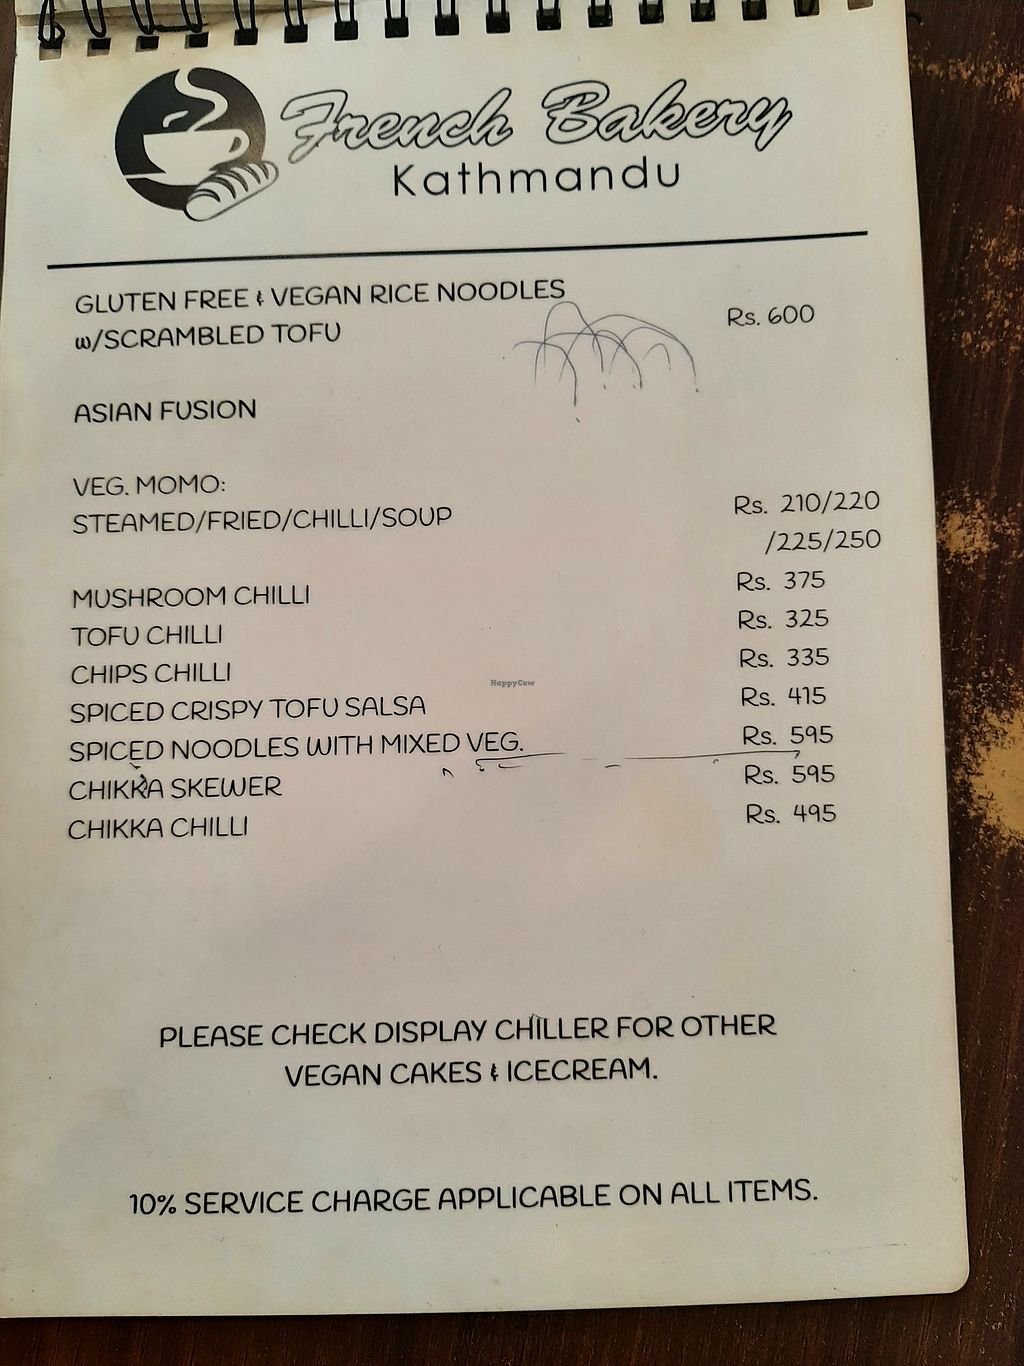 French Bakery
Kathmandu
GLUTEN FREE & VEGAN RICE NOODLES
w/SCRAMBLED TOFU Rs. 600
ASIAN FUSION
VEG. MOMO:
STEAMED/FRIED/CHILLI/SOUP Rs. 210/220
/225/250
MUSHROOM CHILLI Rs. 375
TOFU CHILLI Rs. 325
CHIPS CHILLI Rs. 335
SPICED CRISPY TOFU SALSA Rs. 415
SPICED NOODLES WITH MIXED VEG. Rs. 595
CHIKKA SKEWER Rs. 595
CHIKKA CHILLI Rs. 495
HappyCow
PLEASE CHECK DISPLAY CHILLER FOR OTHER
VEGAN CAKES & ICECREAM.
10% SERVICE CHARGE APPLICABLE ON ALL ITEMS.